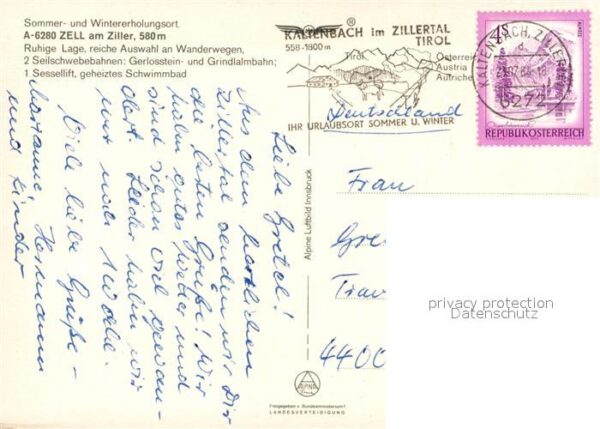 Sommer- und Wintererholungsort
A-6280 ZELL am Ziller, 580 m
Ruhige Lage, reiche Auswahl an Wanderwegen,
2 Seilschwebebahnen: Gerlosstein- und Grindlalmbahn;
1 Sessellift, geheiztes Schwimmbad
Liebe Gretel!
Aus dem herrlichen
Zillertal senden wir Dir
die besten Grüße! Wir
haben gutes Wetter und
sind schon viel gewan-
dert. Leider haben wir
nur noch 1 Woche.
Viele liebe Grüße -
Marianne, Hermann
und Kinder
Alpine Luftbild Innsbruck
ALPINE
Freigegeben v. Bundesministerium f.
LANDESVERTEIDIGUNG
KALTENBACH im ZILLERTAL
®
558-1800 m
TIROL
Tirol
Österreich
Austria
Autriche
IHR URLAUBSORT SOMMER U. WINTER
KALTENBACH, ZILLERTAL
6272
S
REPUBLIK ÖSTERREICH
Deutschland
Frau
Gre
Trav
4400
privacy protection
Datenschutz